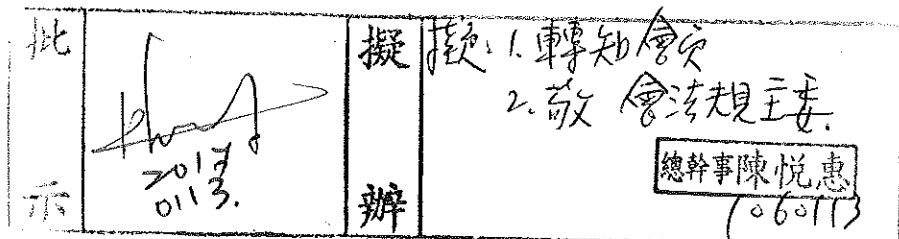 批示
2017
0113.
擬辦
擬：1.轉知會員
2.敬會法規主委.
總幹事陳悅惠
1060113